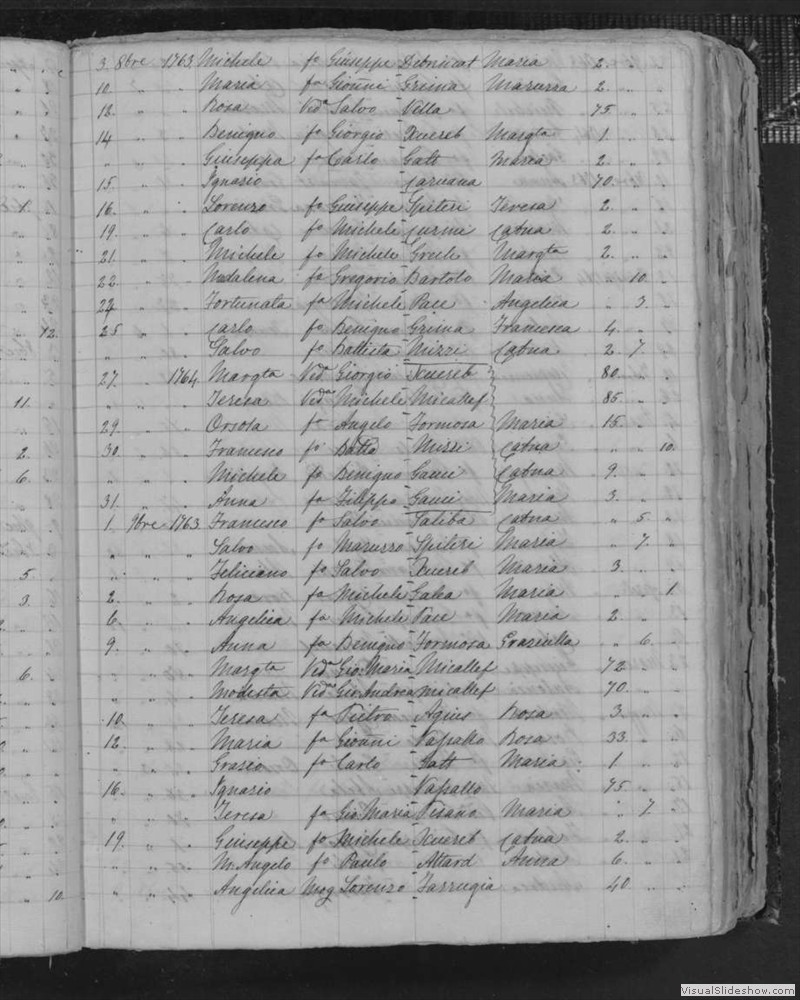 3. 8bre 1763 Michele fo Giuseppe Debrincat Maria 2. " "
10. " " Maria fa Gioūni Grima Maruzza 2. " "
12. " " Rosa Vida Salvo Vella 75 " "
14 " " Benigno fo Giorgio Xuereb Margta 1. " "
" " " Giuseppa fa Carlo Gatt Maria 2. " "
15. " " Ignazio Caruana 70. " "
16. " " Lorenzo fo Giuseppe Spiteri Teresa 2. " "
19. " " Carlo fo Michele Curmi Catna 2. " "
21. " " Michele fo Michele Grech Margta 2. " "
22 " " Madalena fa Gregorio Bartolo Maria " 10. "
24 " " Fortunata fa Michele Pace Angelica " 3. "
25 " " Carlo fo Benigno Grima Francesca 4. " "
" " " Salvo fo Battista Mizzi Catna 2. 7. "
27. " 1764 Margta Vida Giorgio Xuereb 80. " "
" " " Teresa Vida Michele Micallef 85. " "
29. " " Orsola fa Angelo Formosa Maria 15. " "
30. " " Francesco fo Batta Mizzi Catna " " 10.
" " " Michele fo Benigno Gauci Catna 9. " "
31. " " Anna fa Filippo Gauci Maria 3. " "
1. 9bre 1763 Francesco fo Salvo Saliba Catna " 5. "
" " " Salvo fo Maruzzo Spiteri Maria " 7. "
" " " Feliciano fo Salvo Xuereb Maria 3. " "
2. " " Rosa fa Michele Galea Maria " " 1
6. " " Angelica fa Michele Pace Maria 2 " "
9. " " Anna fa Benigno Formosa Graziulla " 6. "
" " " Margta Vida Gio Maria Micallef 72. " "
" " " Modesta Vida Gio Andrea Micallef 70. " "
10. " " Teresa fa Pietro Agius Rosa 3. " "
12. " " Maria fa Gioūni Vassallo Rosa 33. " "
" " " Grazio fo Carlo Gatt Maria 1 " "
16. " " Ignazio Vassallo 75 " "
" " " Teresa fa Gio Maria Pisano Maria " 7. "
19. " " Giuseppe fo Michele Xuereb Catna 2. " "
" " " M. Angelo fo Paulo Attard Anna 6. " "
" " " Angelica Mog Lorenzo Farrugia 40. " "
VisualSlideshow.com